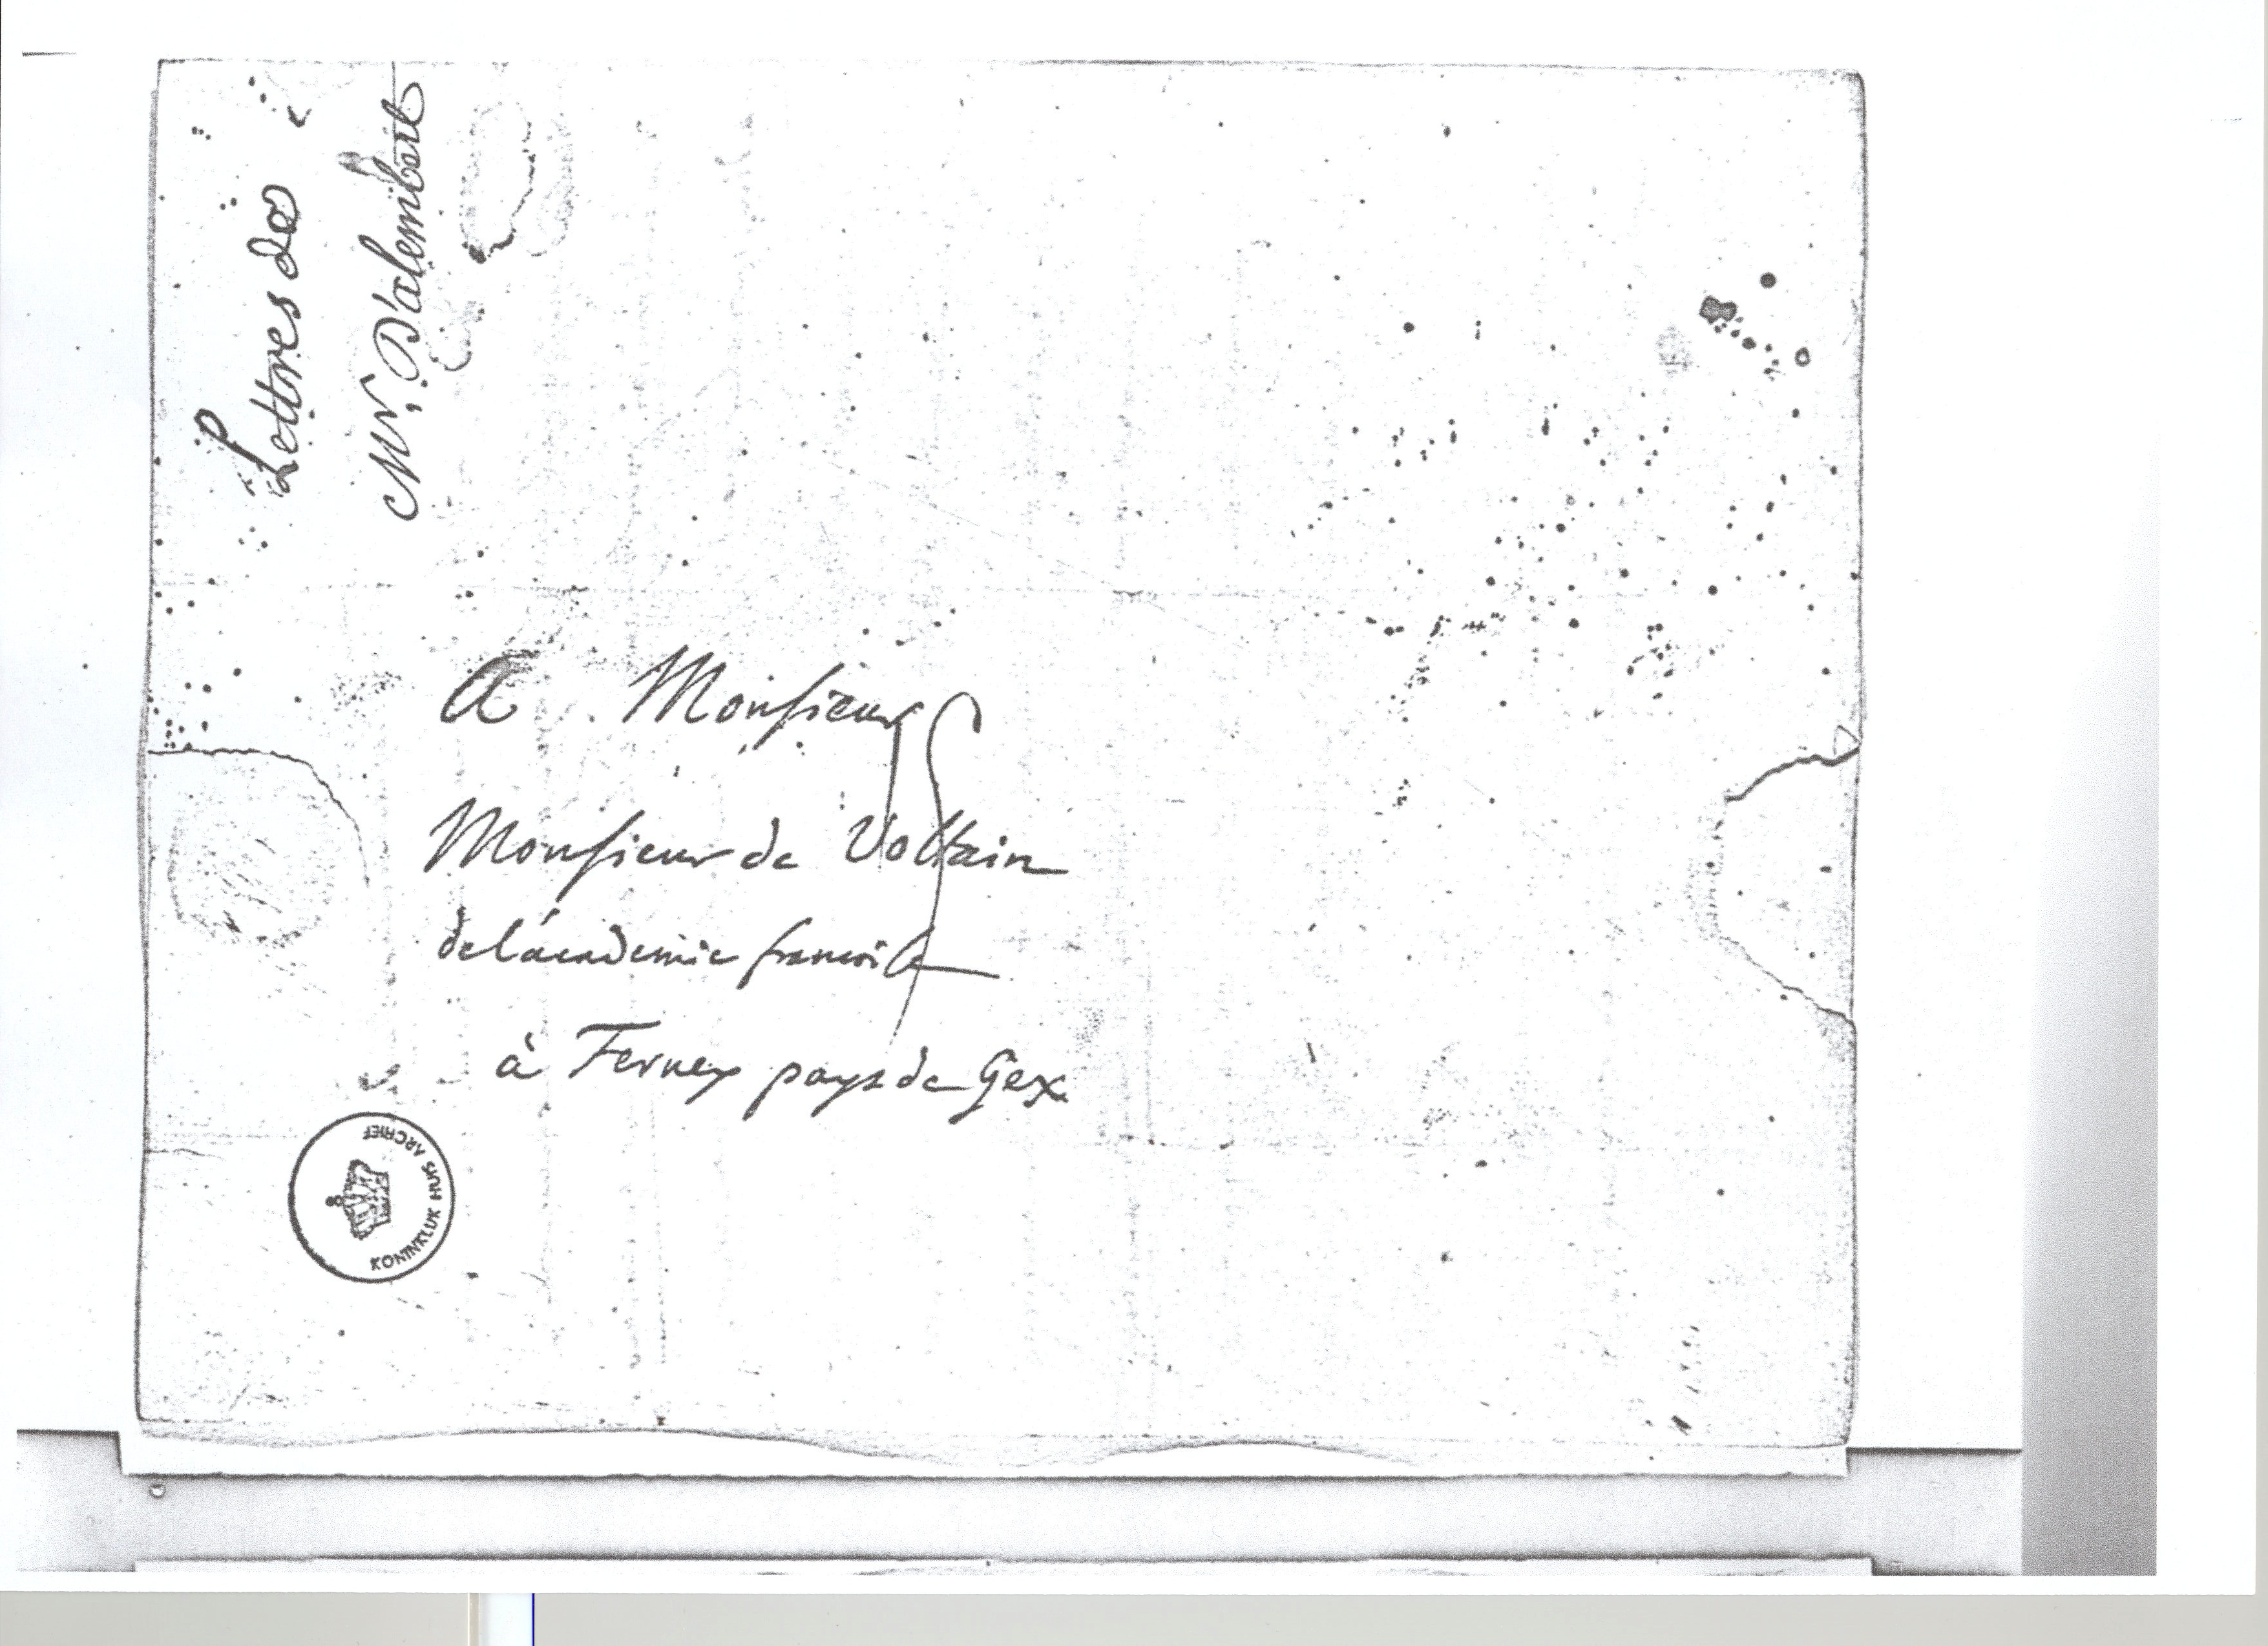 Lettres de
Mr. D'alembert
A Monsieur
Monsieur de Voltaire
de l'académie françoise
à Ferney pays de Gex
KONINKLIJK HUIS ARCHIEF